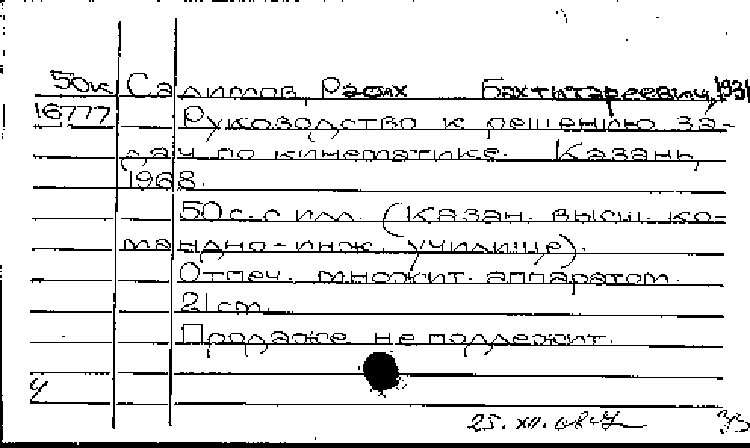 50к Салимов, Рафих Бахтигареевич, 1931
16777 Руководство к решению за-
дач по кинематике. Казань,
1968.
50 с. с илл. (Казан. высш. ко-
мандно-инж. училище).
Отпеч. множит. аппаратом.
21 см.
Продаже не подлежит.
4
25.XII.68